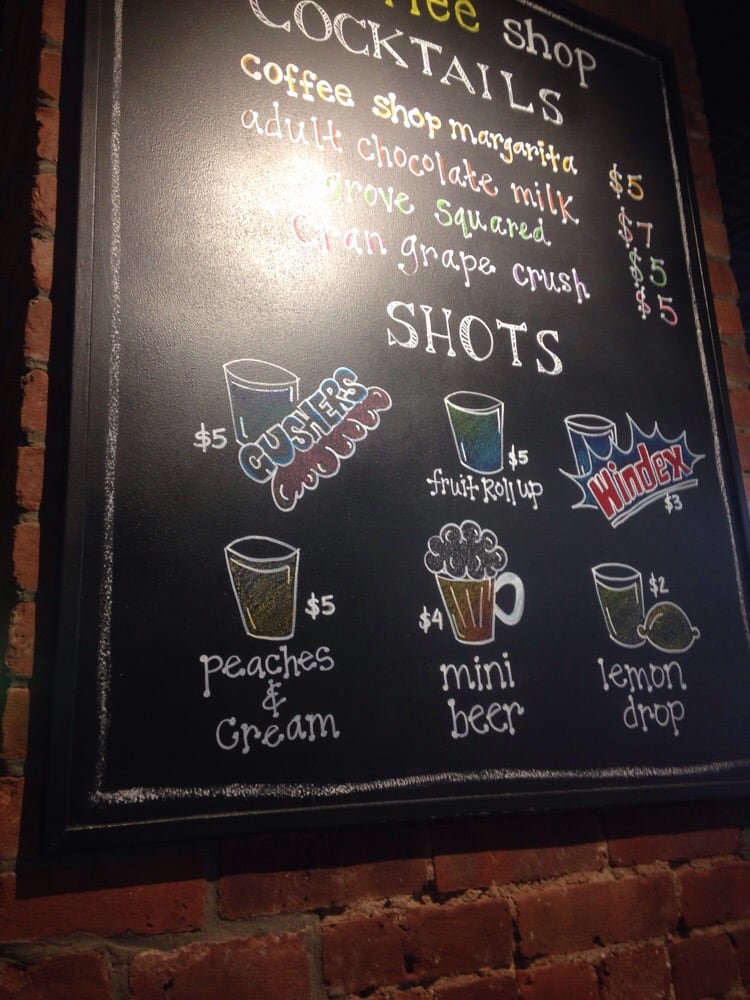 shop
COCKTAILS
coffee shop margarita $5
adult chocolate milk $7
grove squared $5
cran grape crush $5
SHOTS
$5 GUSHERS
$5
fruit Roll up
Windex
$3
$5
peaches
&
cream
$4
mini
beer
$2
lemon
drop